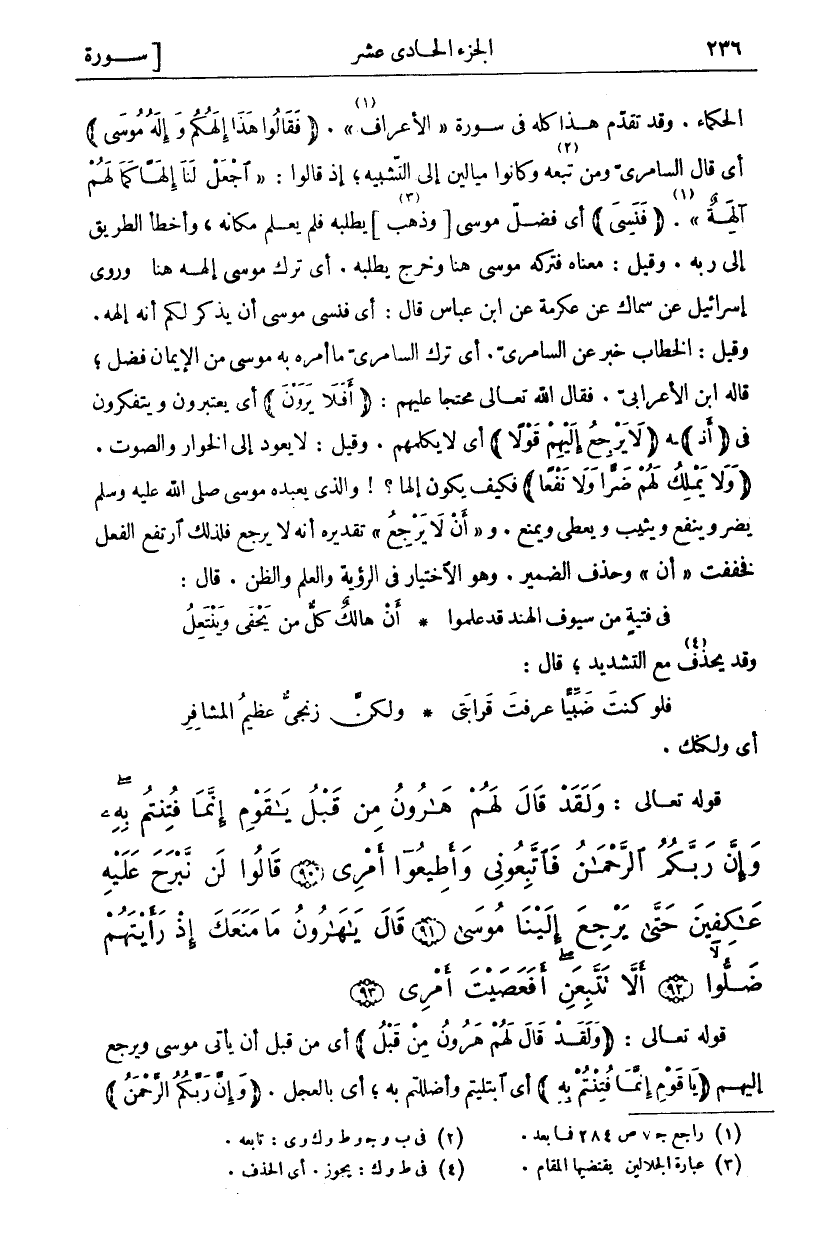 ٢٣٦ الجزء الحادى عشر [ ســورة
الحكماء . وقد تقدّم هــذا كله فى ســورة « الأعراف (١) » . ﴿ فَقَالُوا هَذَا إِلَهُكُم وَ إِلَهُ مُوسَى ﴾
أى قال السامرىّ ومن تبعه (٢) وكانوا ميالين إلى التّشبيه ؛ إذ قالوا : « ٱجْعَلْ لَنَا إِلَهًا كَمَا لَهُمْ
آلِهَةٌ (١) » . ﴿ فَنَسِىَ ﴾ أى فضــلّ موسى [ وذهب (٣) ] يطلبه فلم يعــلم مكانه ، وأخطأ الطريق
إلى ربه . وقيل : معناه فتركه موسى هنا وخرج يطلبه . أى ترك موسى إلهــه هنا وروى
إسرائيل عن سماك عن عكرمة عن ابن عباس قال : أى فنسى موسى أن يذكر لكم أنه إلهه .
وقيل : الخطاب خبر عن السامرىّ . أى ترك السامرىّ ما أمره به موسى من الإيمان فضل ؛
قاله ابن الأعرابىّ . فقال الله تعــالى محتجا عليهم : ﴿ أَفَلَا يَرَوْنَ ﴾ أى يعتبرون و يتفكرون
فى ﴿ أَنـ ﴾ـه ﴿ لَا يَرْجِعُ إِلَيْهِمْ قَوْلًا ﴾ أى لا يكلمهم . وقيل : لا يعود إلى الخوار والصوت .
﴿ وَلَا يَمْلِكُ لَهُمْ ضَرًّا وَلَا نَفْعًا ﴾ فكيف يكون إلها ؟ ! والذى يعبده موسى صلى الله عليه وسلم
يضر وينفع و يثيب و يعطى ويمنع . و « أَنْ لَا يَرْجِعُ » تقديره أنه لا يرجع فلذلك ٱرتفع الفعل
فخففت « أن » وحذف الضمير . وهو الاختيار فى الرؤية والعلم والظن . قال :
فى فتيةٍ من سيوف الهند قد علموا * أَنْ هالكٌ كلُّ من يَحْفَى وَيَنْتَعِلُ
وقد يحذف (٤) مع التشديد ؛ قال :
فلو كنتَ ضَبِّيًّا عرفتَ قَرابَتى * ولكنّ زنجىٌّ عظيمُ المشافِرِ
أى ولكنك .
قوله تعــالى : وَلَقَدْ قَالَ لَهُمْ هَـٰرُونُ مِن قَبْلُ يَـٰقَوْمِ إِنَّمَا فُتِنتُم بِهِۦ
وَإِنَّ رَبَّكُمُ ٱلرَّحْمَـٰنُ فَٱتَّبِعُونِى وَأَطِيعُوٓا أَمْرِى ٩٠ قَالُوا لَن نَّبْرَحَ عَلَيْهِ
عَـٰكِفِينَ حَتَّىٰ يَرْجِعَ إِلَيْنَا مُوسَىٰ ٩١ قَالَ يَـٰهَـٰرُونُ مَا مَنَعَكَ إِذْ رَأَيْتَهُمْ
ضَلُّوٓا ٩٢ أَلَّا تَتَّبِعَنِ أَفَعَصَيْتَ أَمْرِى ٩٣
قوله تعــالى : ﴿ وَلَقَــدْ قَالَ لَهُمْ هَرُونُ مِنْ قَبْلُ ﴾ أى من قبل أن يأتى موسى ويرجع
إليهــم ﴿ يَا قَوْمِ إِنَّمَا فُتِنْتُمْ بِهِ ﴾ أى ٱبتليتم وأضللتم به ؛ أى بالعجل . ﴿ وَإِنَّ رَبَّكُمُ الرَّحْمَنُ ﴾
(١) راجع جـ ٧ ص ٢٨٤ فــا بعد . (٢) فى ب و جـ و ط و ك و ى : تابعه .
(٣) عبارة الجلالين يقتضيها المقام . (٤) فى ط و ك : يجوز . أى الحذف .